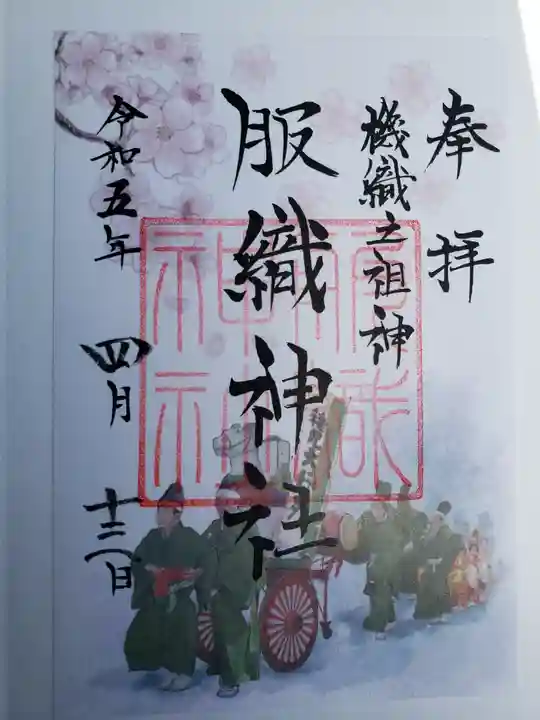 奉拝
機織之祖神
服織神社
令和五年
四月
十三日